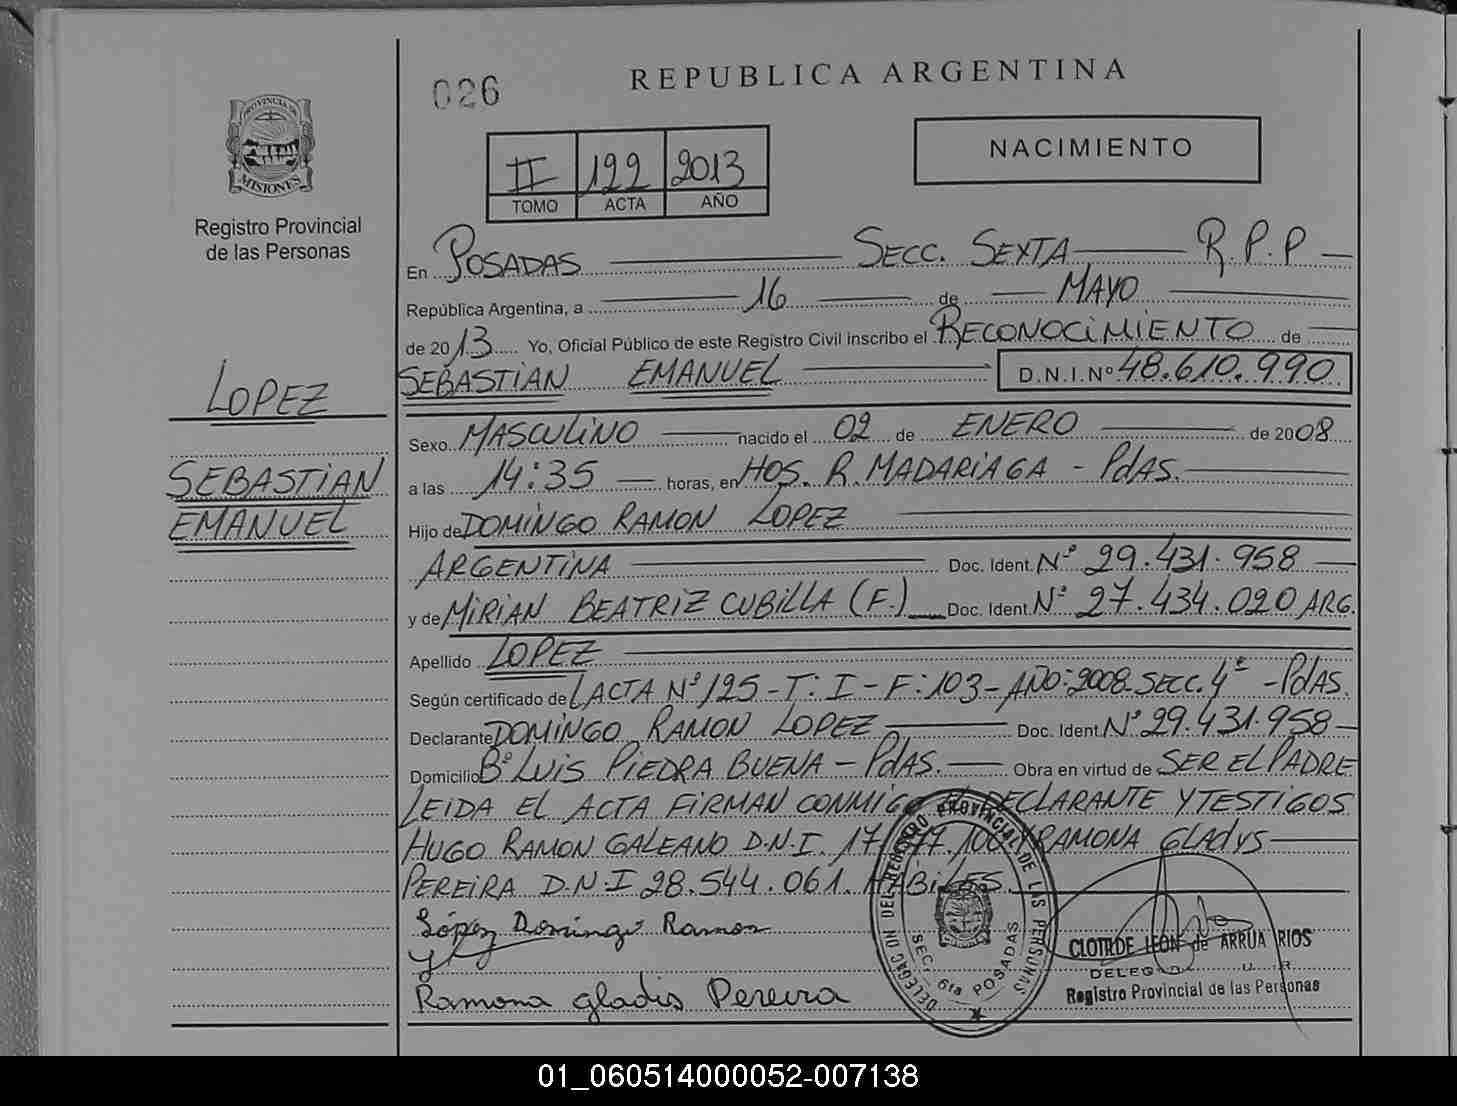 026
REPUBLICA ARGENTINA
PROVINCIA DE
MISIONES
Registro Provincial
de las Personas
II 122 2013
TOMO ACTA AÑO
NACIMIENTO
En POSADAS SECC. SEXTA R.P.P
República Argentina, a 16 de MAYO
de 2013 Yo, Oficial Público de este Registro Civil inscribo el RECONOCIMIENTO de
SEBASTIAN EMANUEL D.N.I.Nº 48.610.990
LOPEZ
SEBASTIAN
EMANUEL
Sexo MASCULINO nacido el 02 de ENERO de 2008
a las 14:35 horas, en HOS. R. MADARIAGA - PdAS.
Hijo de DOMINGO RAMON LOPEZ
ARGENTINA Doc. Ident. Nº 29.431.958
y de MIRIAN BEATRIZ CUBILLA (F.) Doc. Ident. Nº 27.434.020 ARG.
Apellido LOPEZ
Según certificado de L ACTA Nº 125 - T: I - F: 103 - AÑO: 2008 - SECC. 4ª - PdAS.
Declarante DOMINGO RAMON LOPEZ Doc. Ident. Nº 29.431.958
Domicilio Bº LUIS PIEDRA BUENA - PdAS. Obra en virtud de SER EL PADRE
LEIDA EL ACTA FIRMAN CONMIGO EL DECLARANTE Y TESTIGOS
HUGO RAMON GALEANO D.N.I. RAMONA GLADYS
PEREIRA D.N.I 28.544.061. HABILES.
López Domingo Ramon
Ramona gladis Pereira
DELEGACION DEL REGISTRO PROVINCIAL DE LAS PERSONAS
SEC. 6ta POSADAS
CLOTILDE LEON de ARRUA RIOS
Registro Provincial de las Personas
01_060514000052-007138